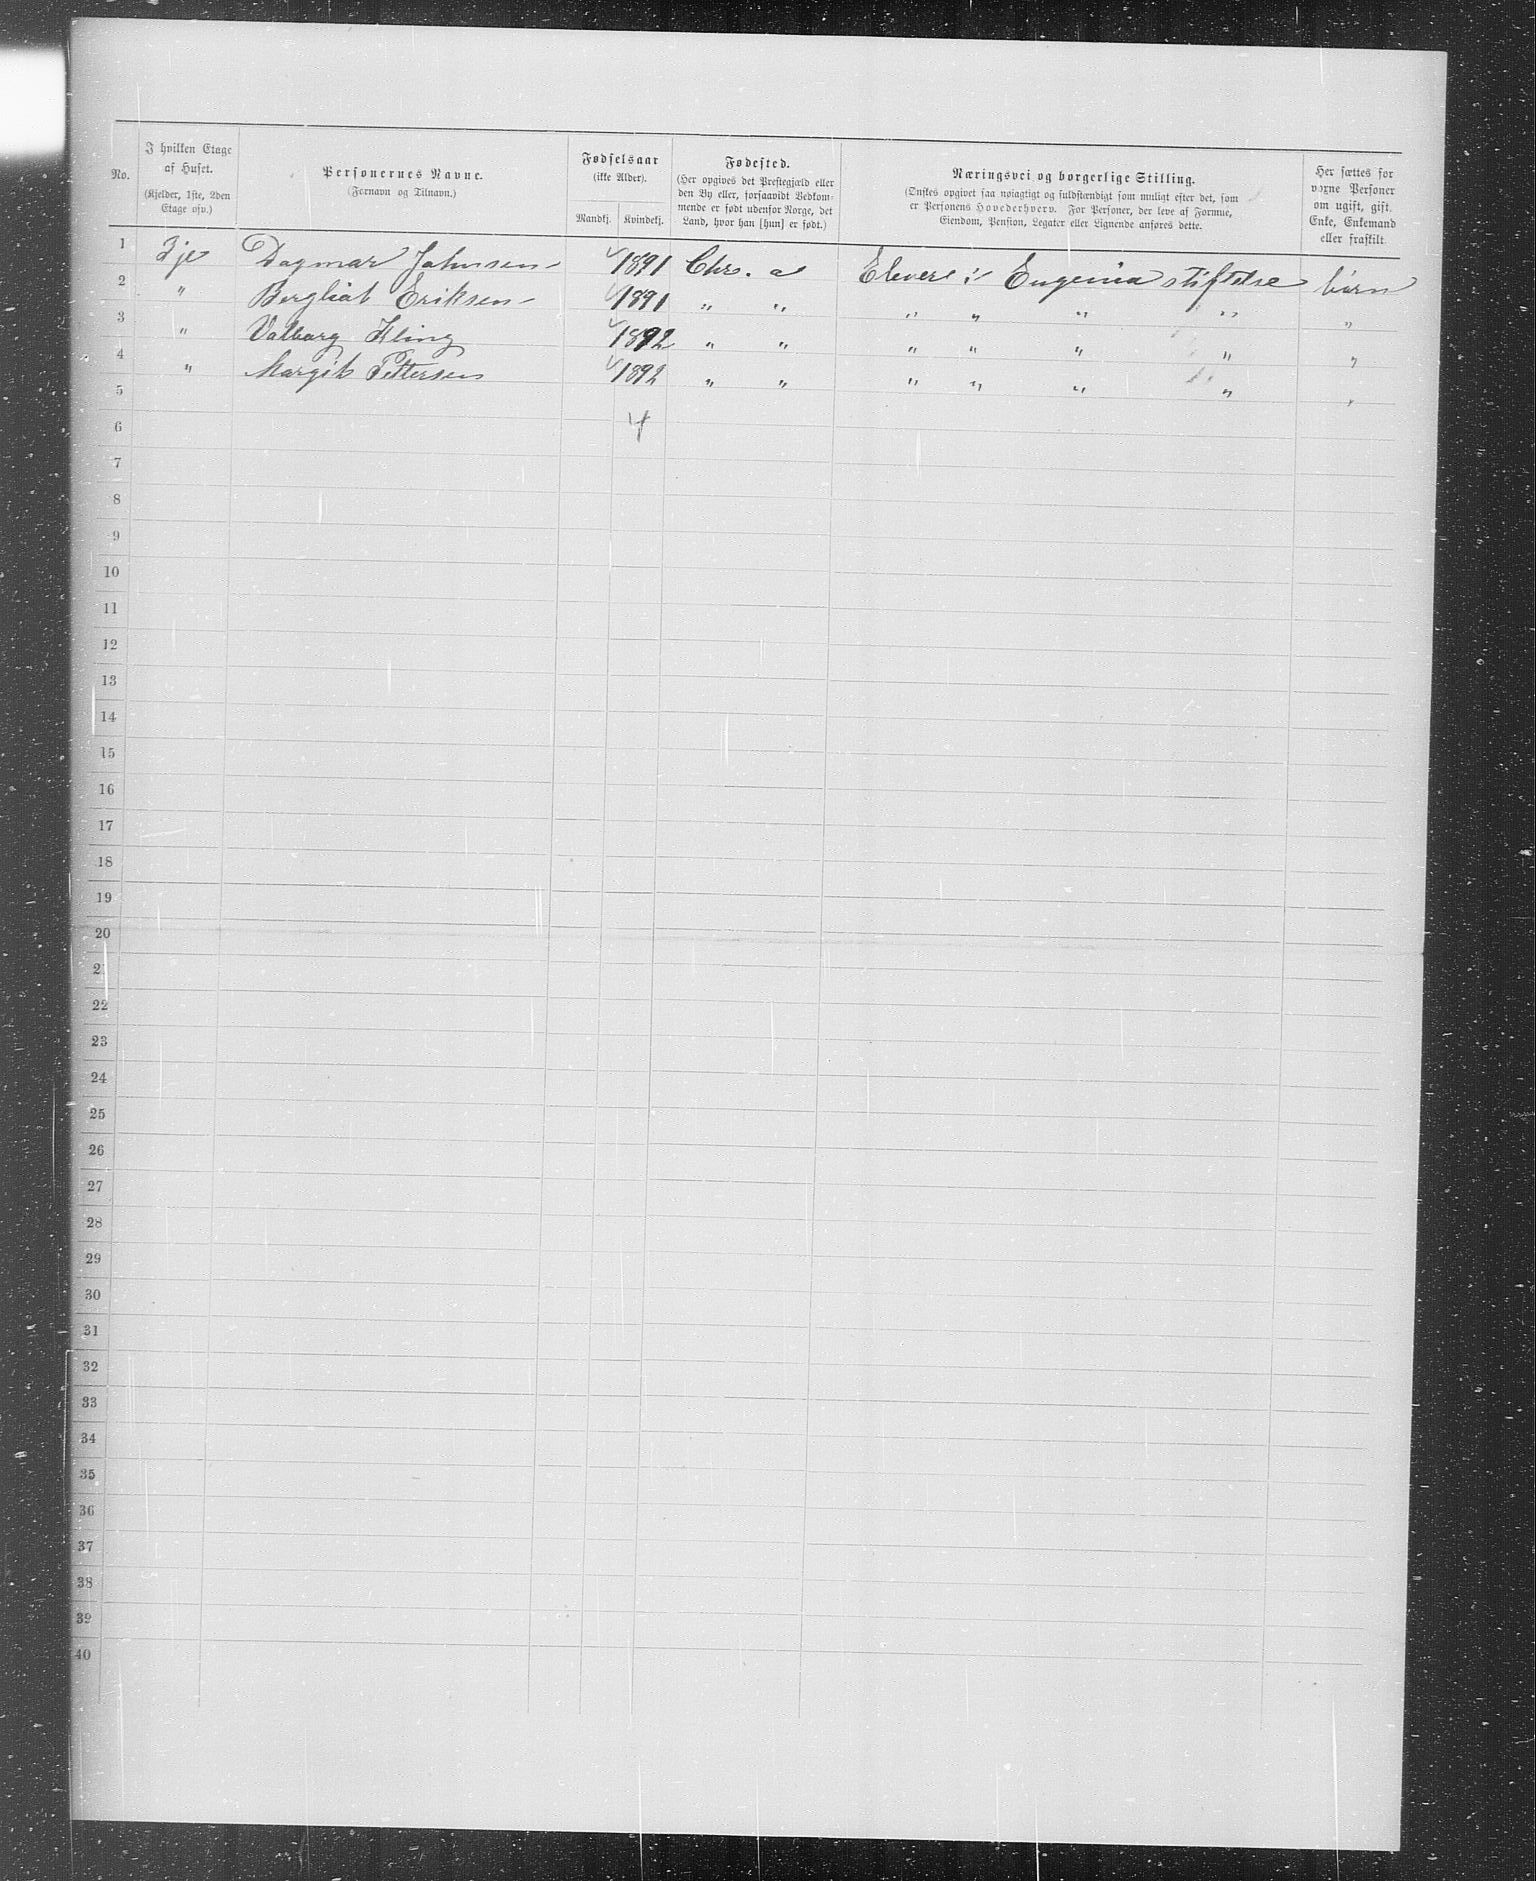 No. | I hvilken Etage af Huset. (Kjelder, 1ste, 2den Etage osv.) | Personernes Navne. (Fornavn og Tilnavn.) | Fødselsaar (ikke Alder). Mandkj. Kvindekj. | Fødested. (Her opgives det Præstegjæld eller den By eller, forsaavidt Vedkommende er født udenfor Norge, det Land, hvor han [hun] er født.) | Næringsvei og borgerlige Stilling. (Ønskes opgivet saa nøiagtigt og fuldstændigt som muligt efter det, som er Personens Hovederhverv. For Personer, der leve af Formue, Eiendom, Pension, Legater eller Lignende anføres dette. | Her sættes for voxne Personer om ugift, gift, Enke, Enkemand eller fraskilt.
1 3je Dagmar Johnsen 1891 Chr. a Elever i Eugenia stiftelse børn
2 " Bergliot Eriksen 1891 " " " " " " "
3 " Valborg Kling 1892 " " " " " " "
4 " Margit Pettersen 1892 " " " " " " "
5
6 4
7
8
9
10
11
12
13
14
15
16
17
18
19
20
21
22
23
24
25
26
27
28
29
30
31
32
33
34
35
36
37
38
39
40